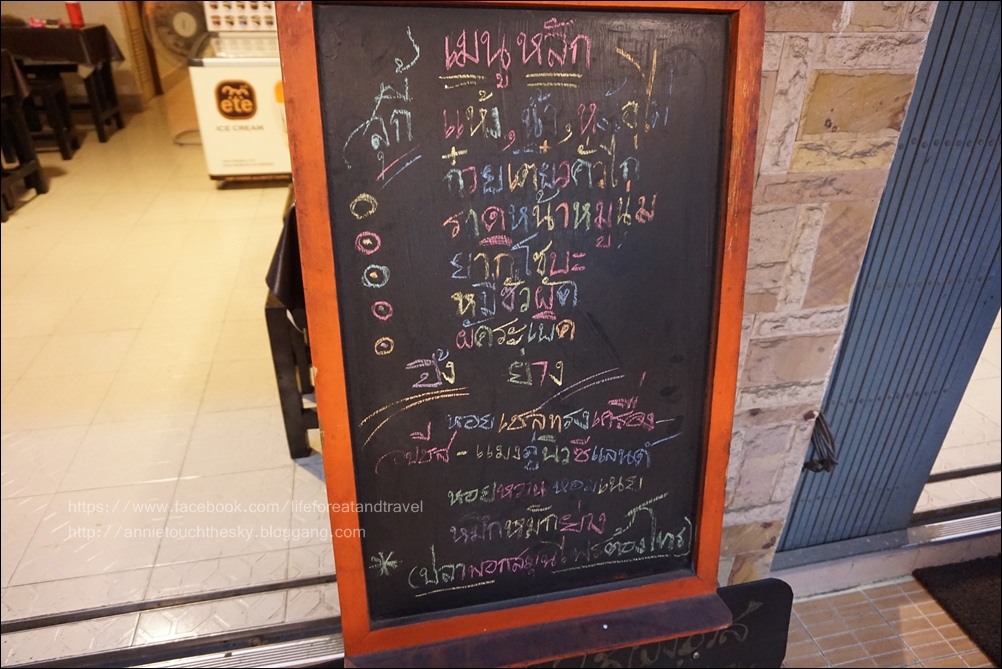 เมนูหลัก
สุกี้ แห้ง, น้ำ, หม้อไฟ
ก๋วยเตี๋ยวคั่วไก่
ราดหน้าหมูนุ่ม
ยากิโซบะ
หมี่ซั่วผัด
ผัดกระเพา
ปิ้ง ย่าง
หอยเชลทรงเครื่อง
ชีส - แมงภู่นิวซีแลนด์
หอยหวาน หอยเนย
หมึกย่าง
(ปลาพอกสมุนไพรต้องโทร)
ete
ICE CREAM
https://www.facebook.com/lifeforeatandtravel
http://annietouchthesky.bloggang.com